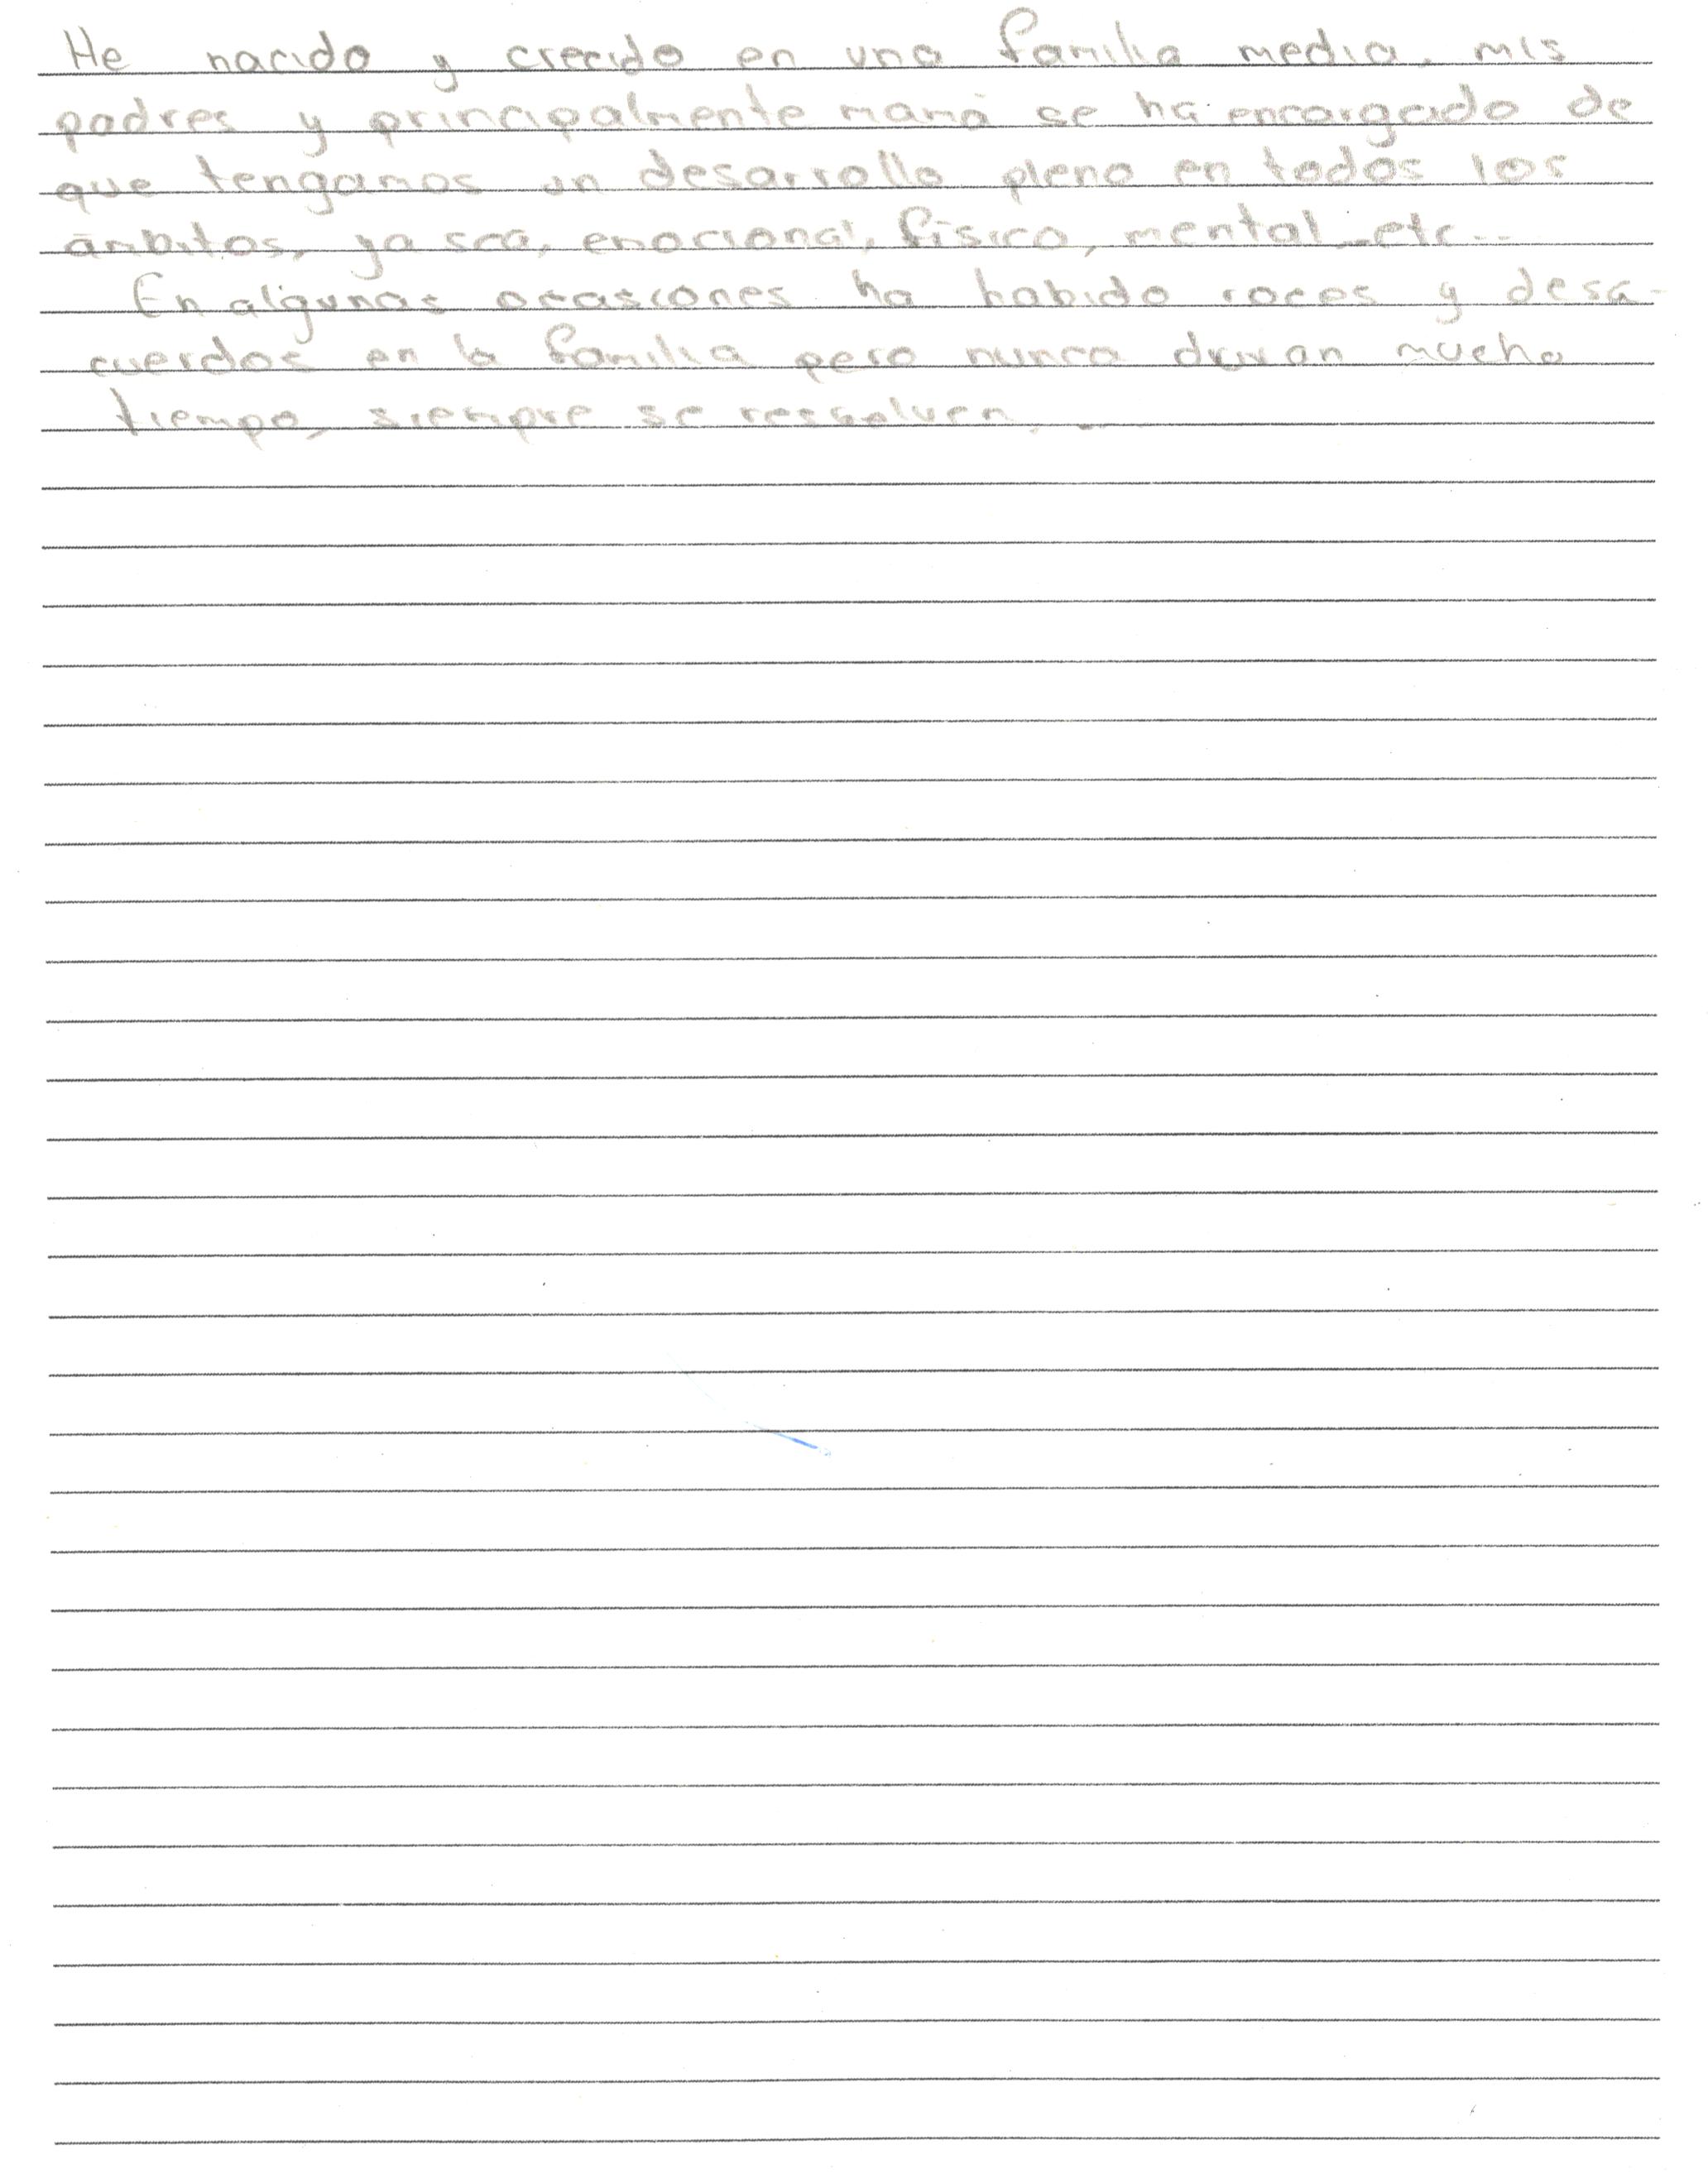 He nacido y crecido en una familia media. mis
padres y principalmente mamá se ha encargado de
que tengamos un desarrollo pleno en todos los
ámbitos, ya sea, emocional, físico, mental etc..
En algunas ocasiones ha habido roces y desa-
cuerdos en la familia pero nunca duran mucho
tiempo, siempre se ressolven.